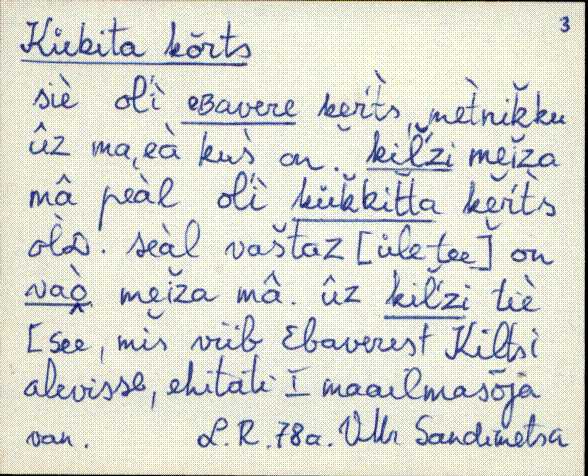 3
Kükita kõrts
siè ol'ì eBavere kèŕts, mètnikku
ûz ma, eà kus̀ on. kiľ́zi mèiza
mâ peàl ol'ì kükkitta kèŕts
òlD. seàl vaštaz [üle tee] on
vaò mèiza mâ. ûz kiľ́zi tiè
[see, mis viib Ebaverest Kiltsi
alevisse, ehitati I maailmasõja
van. L. R. 78a. VMr Sandimetsa